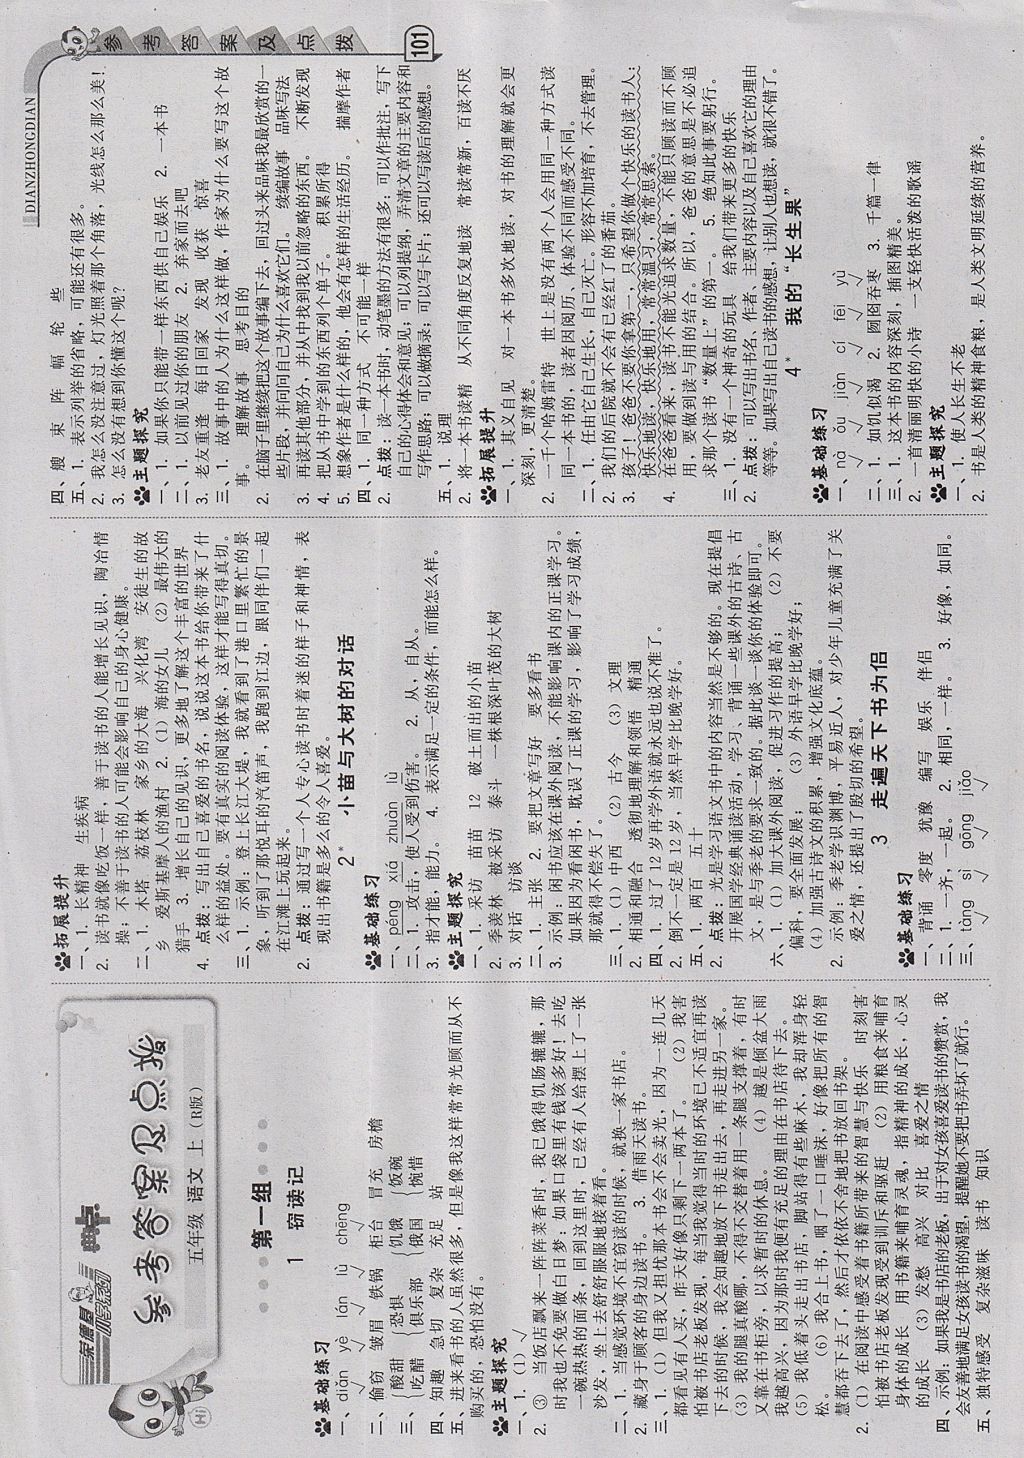 荣德基
典中点
参考答案及点拨
五年级 语文 上(R版)
Hi
第一组
1 窃读记
基础练习
一、diàn yè lán lǜ chēng
二、偷窃 皱眉 铁锅 柜台 冒充 房檐
三、{酸甜 {恐惧 {饥饿 {饭碗
{吃醋 {俱乐部 {俄国 {惋惜
四、知趣 急切 复杂 充足 站
五、进来看书的人虽然很多,但是像我这样常常光顾而从不
购买的,恐怕没有。
主题探究
一、1. (1)√
2. ③ 当饭店飘来一阵阵菜香时,我已饿得饥肠辘辘,那
时我也不免要做白日梦:如果口袋里有钱该多好!去吃
一碗热热的面条,回到这里时,已经有人给摆上了一张
沙发,坐上去舒舒服服地接着看。
二、1. 当感觉环境不宜窃读的时候,就换一家书店。
2. 藏身于顾客的身边读书。 3. 借雨天读书。
三、1. (1)但我又担忧那本书会不会卖光,因为一连几天
都看见有人买,昨天好像只剩下一两本了。 (2)我害
怕被书店老板发现,每当我觉得当时的环境已不适宜再读
下去的时候,我会知趣地放下书走出去,再走进另一家。
(3)我的腿真酸哪,不得不交替着用一条腿支撑着,有时
又靠在书柜旁,以求暂时的休息。 (4)越是倾盆大雨
我越高兴,因为那时我便有充足的理由在书店待下去。
(5)我低着头走出书店,脚站得有些麻木,我却浑身轻
松。 (6)我合上书,咽了一口唾沫,好像把所有的智
慧都吞下去了,然后才依依不舍地把书放回书架。
2. (1)在阅读中感受着书籍所带来的智慧与快乐 时刻害
怕被书店老板发现受到训斥和驱赶 (2)用粮食来哺育
身体的成长 用书籍来哺育灵魂,指精神的成长,心灵
的成长 (3)发愁 高兴 对比 喜爱之情
四、示例:如果我是书店的老板,出于对女孩喜爱读书的赞赏,我
会友善地满足女孩读书的渴望,提醒她不要把书弄坏了就行。
五、独特感受 复杂滋味 读书 知识
拓展提升
一、1. 长精神 生疾病
2. 读书就像吃饭一样,善于读书的人能增长见识,陶冶情
操;不善于读书的人可能会影响自己的身心健康。
二、1. 木塔 荔枝林 家乡的大海 兴化湾 安徒生的故
乡 爱斯基摩人的渔村 2. (1)海的女儿 (2)最伟大的
猎手 3. 增长自己的见识,更多地了解这个丰富的世界
4. 点拨:写出自己喜爱的书名,说说这本书给你带来了什
么样的益处。要有真实的阅读体验,这样才能写得真切。
三、1. 示例:登上长江大堤,我就看到了港口里繁忙的景
象,听到了那悦耳的汽笛声,我跑到江边,跟同伴们一起
在江滩上玩起来。
2. 点拨:通过写一个人专心读书时着迷的样子和神情,表
现出书籍是多么的令人喜爱。
2* 小苗与大树的对话
基础练习
一、pēng xiá zhuàn lǔ
二、1. 攻击,使人受到伤害。 2. 从,自从。
3. 指才能,能力。 4. 表示满足一定的条件,而能怎么样。
主题探究
一、1. 采访 苗苗 12 破土而出的小苗
2. 季羡林 被采访 泰斗 一株根深叶茂的大树
3. 对话 访谈
二、1. 主张 2. 要把文章写好 要多看书
3. 示例:闲书应该在课外阅读,不能影响课内的正课学习。
如果因为看闲书,耽误了正课的学习,影响了学习成绩,
那就得不偿失了。
三、1. (1)中西 (2)古今 (3)文理
2. 相通和融合 透彻地理解和领悟 精通
四、1. 过了12岁再学外语就永远也说不准了。
2. 倒不一定是12岁,当然早学比晚学好。
五、1. 两百 五十
2. 点拨:光是学习语文书中的内容当然是不够的。现在提倡
开展国学经典诵读活动,学习、背诵一些课外的古诗、古
文,是与季老的要求一致的。据此谈一谈你的体验即可。
六、1. (1)加大课外阅读,促进习作的提高; (2)不要
偏科,要全面发展; (3)外语早学比晚学好;
(4)加强古诗文的积累,增强文化底蕴。
2. 示例:季老学识渊博,平易近人,对少年儿童充满了关
爱之情,还提出了殷切的希望。
3 走遍天下书为侣
基础练习
一、背诵 零度 犹豫 编写 娱乐 伴侣
二、1. 一齐,一起。 2. 相同,一样。 3. 好像,如同。
三、tóng sì gōng jiāo
四、艘 束 阵 幅 轮 些
五、1. 表示列举的省略,可能还有很多。
2. 我怎么没注意过,灯光照着那个角落,光线怎么那么美!
3. 怎么没有想到你懂这个呢?
主题探究
一、1. 如果你只能带一样东西供自己娱乐 2. 一本书
二、1. 以前见过你的朋友 2. 弃家而去吧
3. 老友重逢 每日回家 发现 收获 惊喜
三、1. 故事中的人为什么这样做,作家为什么要写这个故
事。 理解故事 思考目的
2. 在脑子里继续把这个故事编下去,回过头来品味我最欣赏的一
些片段,并问问自己为什么喜欢它们。 续编故事 品味写法
3. 再读其他部分,并从中找到我以前忽略的东西。 不断发现
4. 把从书中学到的东西列个单子。 积累所得
5. 想象作者是什么样的,他会有怎样的生活经历。 揣摩作者
四、1. 同一种方式 不可能一样
2. 点拨:读一本书时,动笔墨的方法有很多:可以作批注,写下
自己的心得体会和意见;可以列提纲,弄清文章的主要内容和
写作思路;可以做摘录;可以写卡片;还可以写读后的感想。
五、1. 说理
2. 将一本书读精 从不同角度反复地读 常读常新,百读不厌
拓展提升
一、1. 其义自见 对一本书多次地读,对书的理解就会更
深刻,更清楚。
2. 一千个哈姆雷特 世上是没有两个人会用同一种方式读
同一本书的,读者因阅历、体验不同而感受不同。
二、1. 任由它自己生长,自己灭亡。形容不加培育,不去管理。
2. 我们的后院就不会有已经红了的番茄。
3. 孩子!爸爸不要你拿第一,只希望你做个快乐的读书人:
快乐地读,快乐地用,常常温习,常常思索。
4. 在爸爸看来,读书不能光追求数量,不能只顾读而不顾
用,要做到读与用的结合。所以,爸爸的意思是不必追
求那个读书“数量上”的第一。 5. 绝知此事要躬行。
三、1. 没有一个神奇的玩具 给我们带来更多的快乐
2. 点拨:可以写出书名,作者、主要内容以及自己喜欢它的理由
等等。如果写出自己读书的感想,让别人也想读,就很不错了。
4* 我的“长生果”
基础练习
一、nà ǒu jiàn cí fēi yù
二、1. 如饥似渴 2. 囫囵吞枣 3. 千篇一律
三、1. 这本书的内容深刻,插图精美。
2. 一首清丽明快的小诗 一支轻快活泼的歌谣
主题探究
一、1. 使人长生不老
2. 书是人类的精神食粮,是人类文明延续的营养。
DIANZHONGDIAN
参考答案及点拨
101